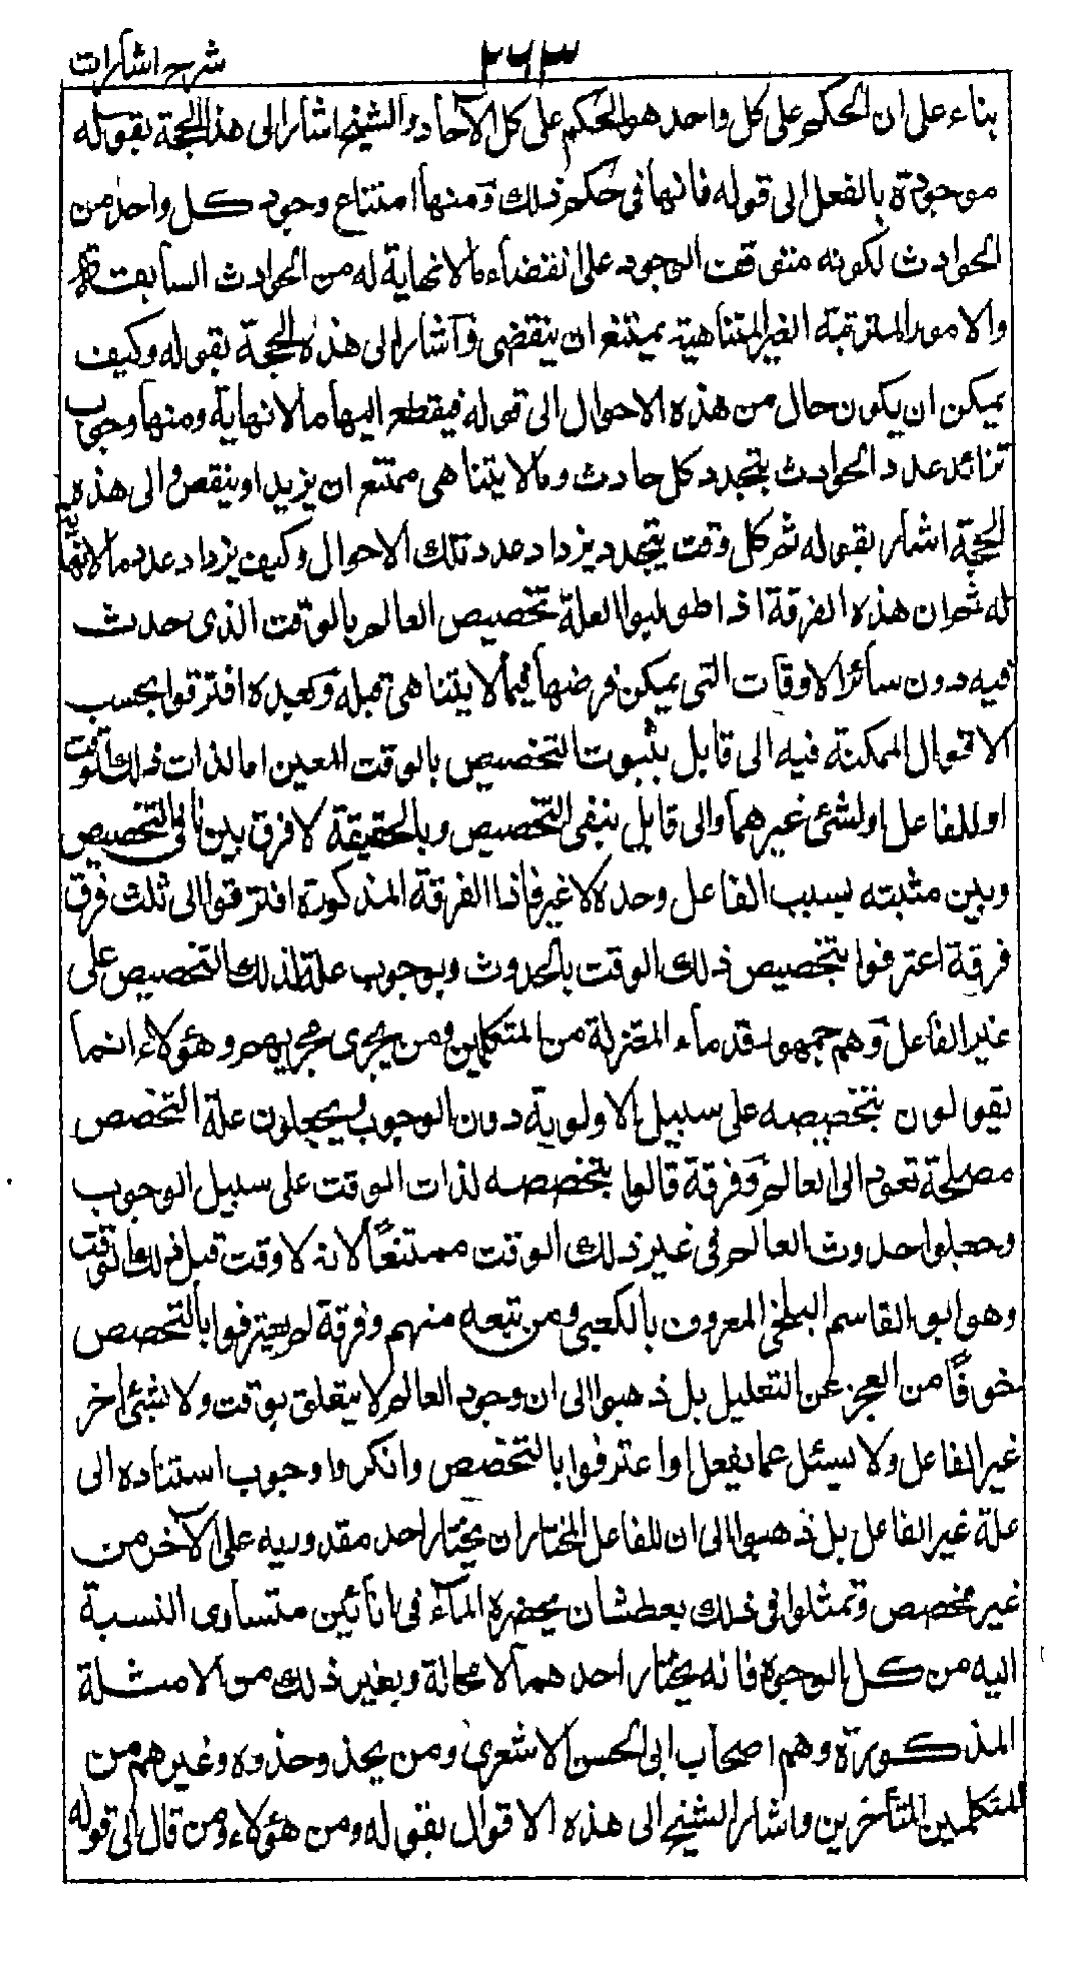 شرح اشارات
٢٦٣
بناء على ان الحكم على كل واحد هو الحكم على كل الآحاد والشيخ اشار الى هذا الحجة بقوله
موجودة بالفعل الى قوله فانها فى حكم ذلك ومنها امتناع وجود كل واحد من
الحوادث لكونه متوقف الوجود على انقضاء مالانهاية له من الحوادث السابقة
والامور المترتبة الغير المتناهية يمتنع ان ينقضى وآشار الى هذه الحجة بقوله وكيف
يمكن ان يكون حال من هذه الاحوال الى قوله فيقطع اليها مالانهاية ومنها وجوب
تزائد عدد الحوادث بتجدد كل حادث ومالا يتناهى ممتنع ان يزيد او ينقص والى هذه
الحجة اشار بقوله ثم كل وقت يتجدد يزداد عدد تلك الاحوال وكيف يزداد عدد مالانهاية
له ثم ان هذه الفرقة اذا طولبوا العلة تخصيص العالم بالوقت الذى حدث
فيه دون سائر الاوقات التى يمكن فرضها فيما لا يتناهى قبله وبعده افترقوا بحسب
الاقوال الممكنة فيه الى قابل بثبوت التخصيص بالوقت المعين اما لذات ذلك الوقت
او للفاعل او لشئ غيرهما والى قابل بنفى التخصيص وبالحقيقة لا فرق بين نافى التخصيص
وبين مثبته بسبب الفاعل وحده لا غير فاذا الفرقة المذكورة افترقوا الى ثلث فرق
فرقة اعترفوا بتخصيص ذلك الوقت بالحدوث وبوجوب علة لذلك التخصيص على
غير الفاعل وهم جمهور قدماء المعتزلة من المتكلمين ومن يجرى مجريهم وهؤلاء انما
يقولون بتخصيصه على سبيل الاولوية دون الوجوب ويجعلون علة التخصص
مصلحة تعود الى العالم وفرقة قالوا بتخصصه لذات الوقت على سبيل الوجوب
وجعلوا حدوث العالم فى غير ذلك الوقت ممتنعاً لانه لا وقت قبل ذلك الوقت
وهو ابو القاسم البلخى المعروف بالكعبى ومن تبعه منهم وفرقة لم يعترفوا بالتخصص
خوفاً من العجز عن التعليل بل ذهبوا الى ان وجود العالم لا يتعلق بوقت ولا شئ اخر
غير الفاعل ولا يسئل عما يفعل او اعترفوا بالتخصص وانكروا وجوب استناده الى
علة غير الفاعل بل ذهبوا الى ان للفاعل المختار ان يختار احد مقدوريه على الآخر من
غير مخصص وتمثلوا فى ذلك بعطشان يحضره المآء فى انائين متساوى النسبة
اليه من كل الوجوه فانه يختار احدهما لا محالة وبغير ذلك من الامثلة
المذكورة وهم اصحاب ابى الحسن الاشعرى ومن يحذو حذوه وغيرهم من
المتكلمين المتأخرين واشار الشيخ الى هذه الاقوال بقوله ومن هؤلاء ومن قال الى قوله